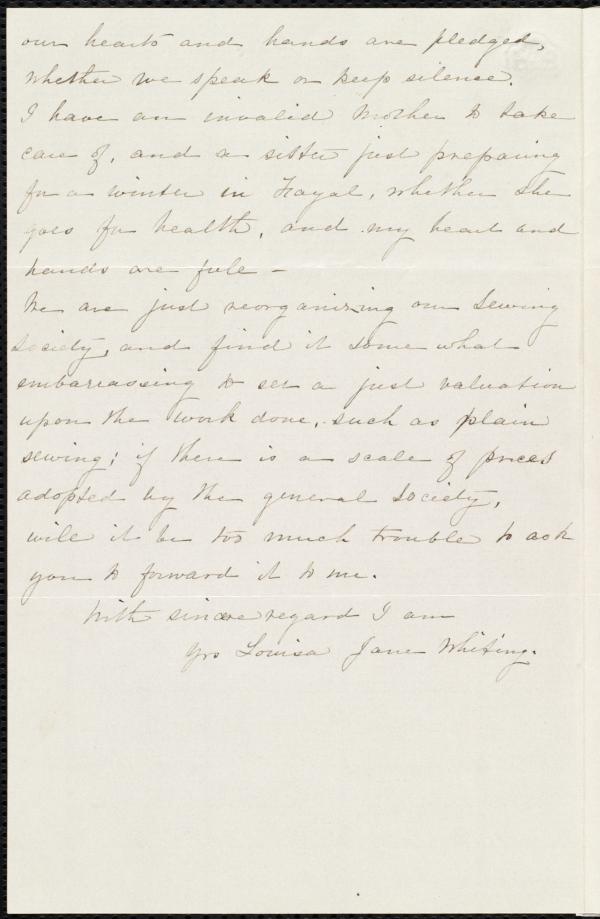 our hearts and hands are pledged,
whether we speak or keep silence.
I have an invalid Mother to take
care of, and a sister just preparing
for a winter in Fayal, whether she
goes for health, and my heart and
hands are full –
We are just reorganizing our Sewing
Society, and find it somewhat
embarrassing to set a just valuation
upon the work done, such as plain
sewing; if there is a scale of prices
adopted by the general Society,
will it be too much trouble to ask
you to forward it to me.
With sincere regard I am
yrs Louisa Jane Whiting.